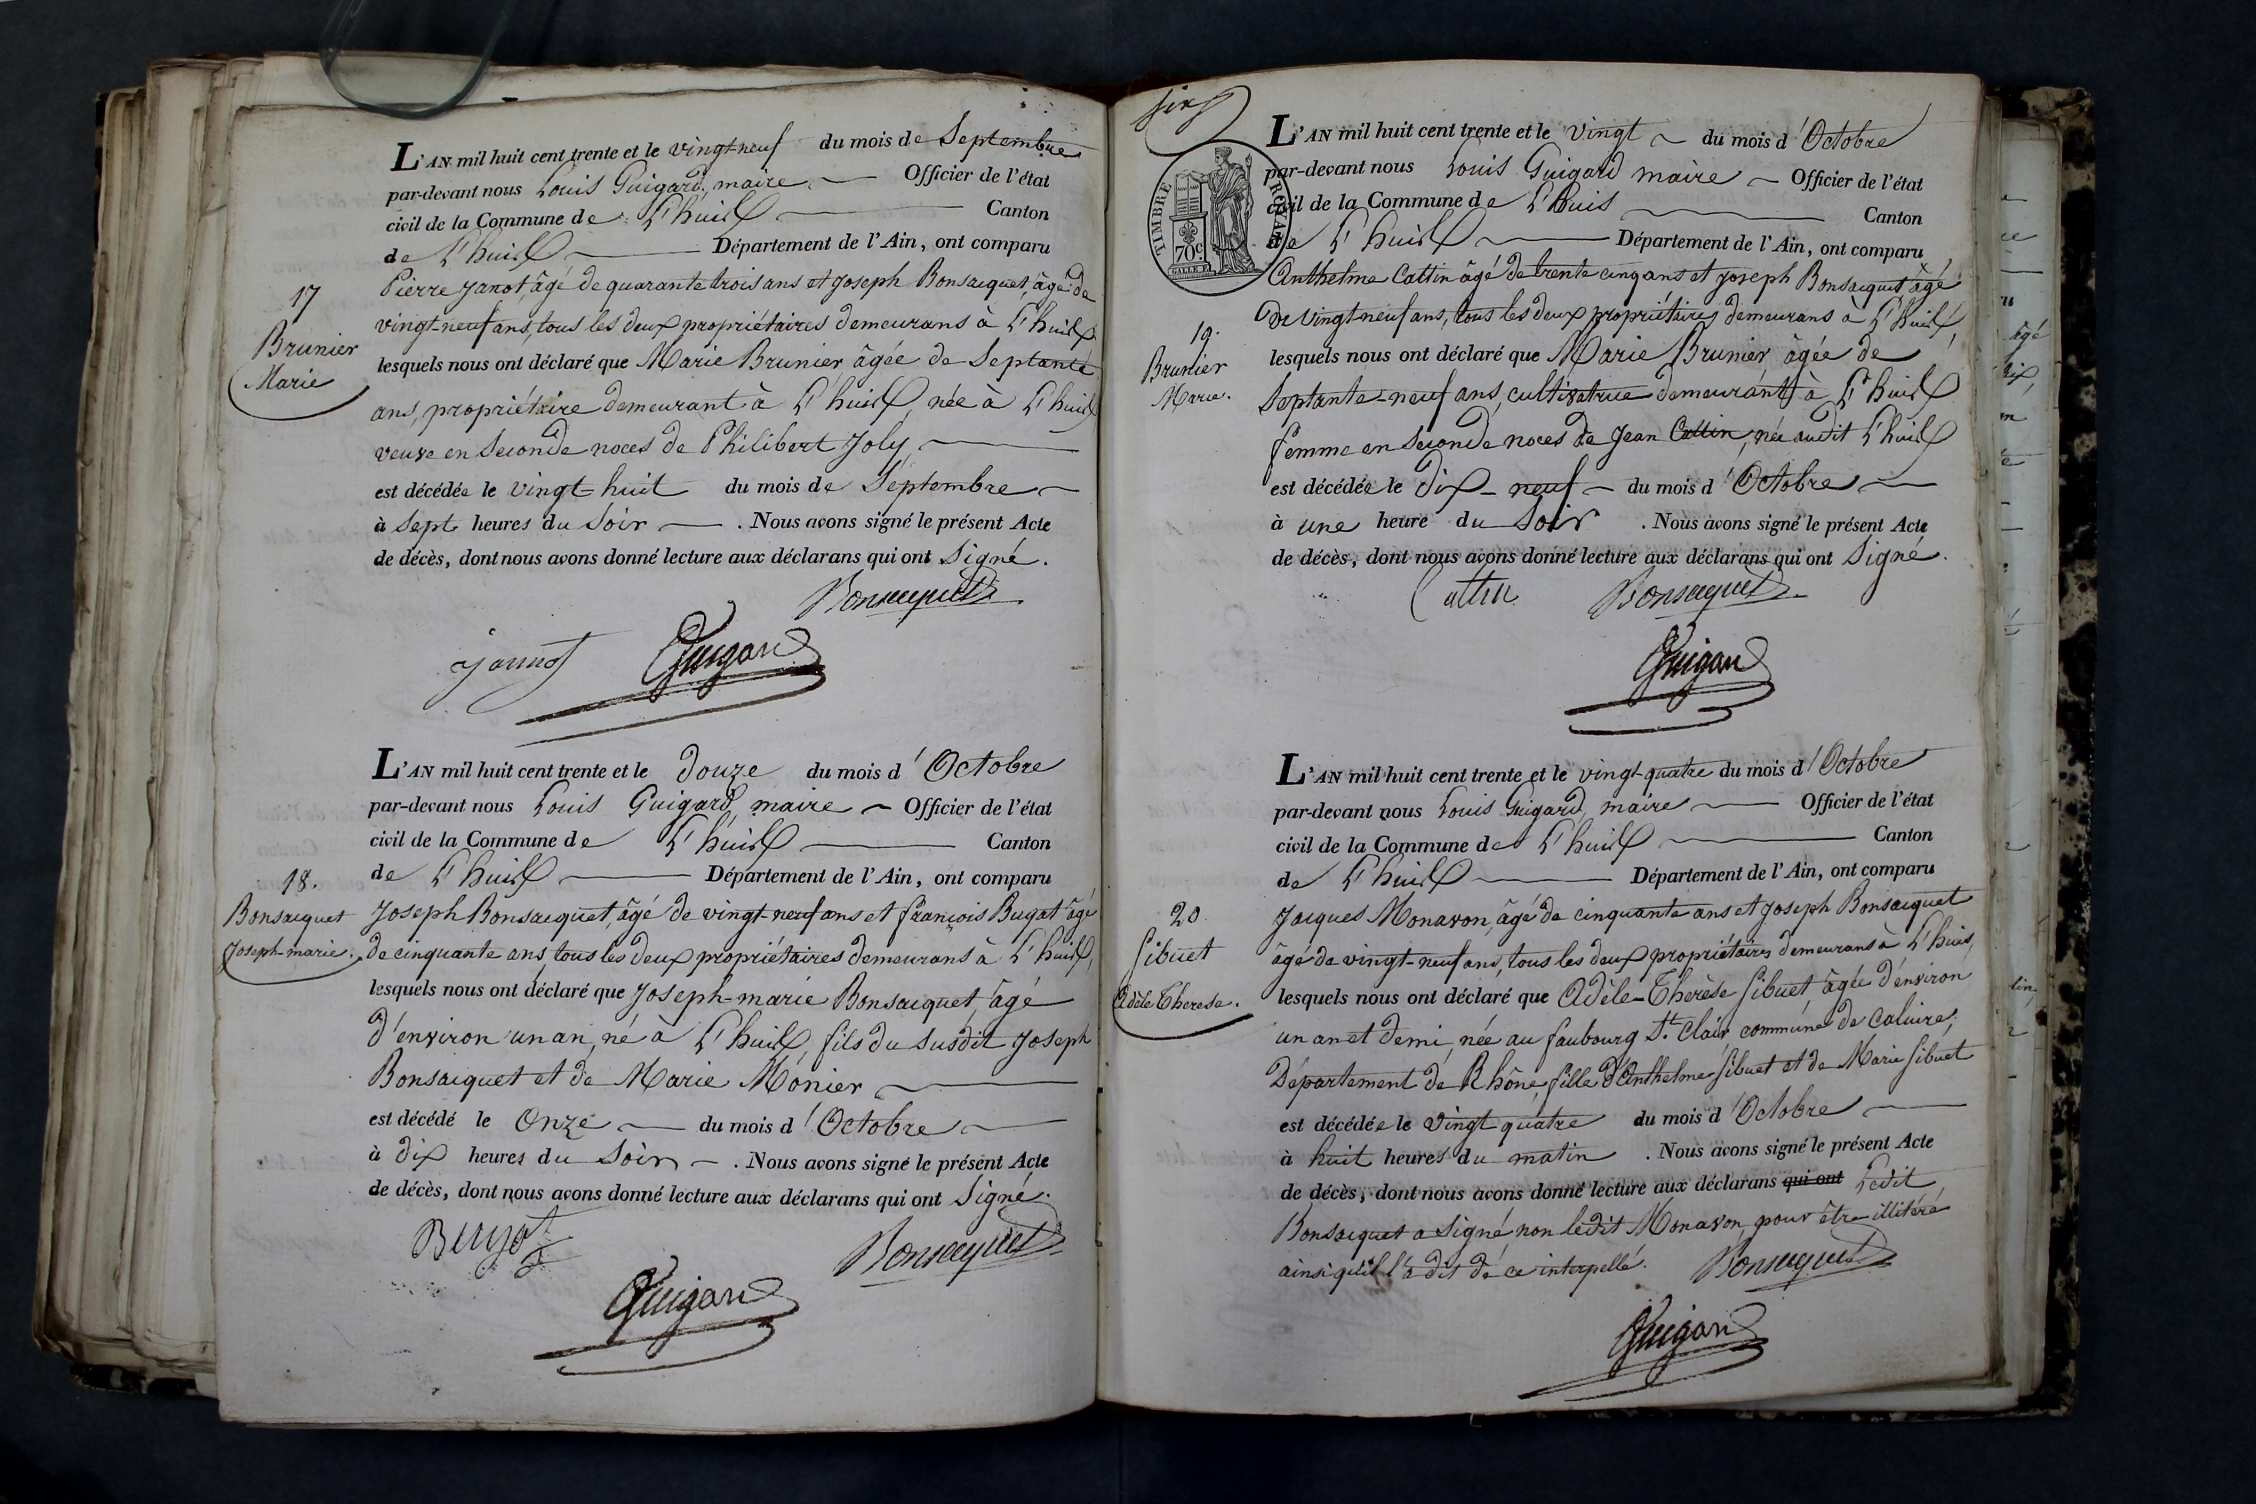 L'AN mil huit cent trente et le vingt-neuf du mois de Septembre
par-devant nous Louis Guigard, maire Officier de l'état
civil de la Commune de L'huis Canton
de L'huis Département de l'Ain, ont comparu
Pierre Janot, âgé de quarante trois ans et Joseph Bonsacquet, âgé de
vingt-neuf ans, tous les deux propriétaires demeurans à L'huis
lesquels nous ont déclaré que Marie Brunier âgée de Septante
ans, propriétaire demeurant à L'huis, née à L'huis
veuve en Seconde noces de Philibert Joly
est décédée le vingt-huit du mois de Septembre
à Sept heures du Soir . Nous avons signé le présent Acte
de décès, dont nous avons donné lecture aux déclarans qui ont Signé.
17
Brunier
Marie
Bonsacquet
Janot Guigard
L'AN mil huit cent trente et le douze du mois d'Octobre
par-devant nous Louis Guigard, maire Officier de l'état
civil de la Commune de L'huis Canton
de L'huis Département de l'Ain, ont comparu
Joseph Bonsacquet, âgé de vingt-neuf ans et françois Bugat âgé
de cinquante ans, tous les deux propriétaires demeurans à L'huis,
lesquels nous ont déclaré que Joseph-marie Bonsacquet, âgé
d'environ un an, né à L'huis, fils du susdit Joseph
Bonsacquet et de Marie Mônier
est décédé le onze du mois d'Octobre
à dix heures du Soir . Nous avons signé le présent Acte
de décès, dont nous avons donné lecture aux déclarans qui ont Signé.
18.
Bonsacquet
Joseph-marie.
Bonsacquet
Guigard
six
TIMBRE ROYAL
70c
L'AN mil huit cent trente et le vingt du mois d'Octobre
par-devant nous Louis Guigard maire Officier de l'état
civil de la Commune de L'huis Canton
de L'huis Département de l'Ain, ont comparu
Anthelme Cattin âgé de trente cinq ans et Joseph Bonsacquet âgé
de vingt-neuf ans, tous les deux propriétaires demeurans à L'huis,
lesquels nous ont déclaré que Marie Brunier âgée de
Septante-neuf ans, cultivatrice demeurant à L'huis
femme en Seconde noces de Jean Cattin, née audit L'huis
est décédée le Dix-neuf du mois d'Octobre
à une heure du Soir . Nous avons signé le présent Acte
de décès, dont nous avons donné lecture aux déclarans qui ont Signé.
19.
Brunier
Marie.
Cattin Bonsacquet
Guigard
L'AN mil huit cent trente et le vingt-quatre du mois d'Octobre
par-devant nous Louis Guigard, maire Officier de l'état
civil de la Commune de L'huis Canton
de L'huis Département de l'Ain, ont comparu
Jacques Monavon, âgé de cinquante ans et Joseph Bonsacquet
âgé de vingt-neuf ans, tous les deux propriétaires demeurans à L'huis,
lesquels nous ont déclaré que Adèle-Thérèse Sibuet âgée d'environ
un an et demi, née au faubourg St. Clair, commune de Caluire,
Département de Rhône, fille d'Anthelme Sibuet et de Marie Sibuet
est décédée le vingt quatre du mois d'Octobre
à huit heures du matin . Nous avons signé le présent Acte
de décès, dont nous avons donné lecture aux déclarans qui ont Ledit
Bonsacquet a Signé non ledit Monavon pour être illitéré
ainsi qu'il l'a dit de ce interpellé. Bonsacquet
20.
Sibuet
Adèle-Thérèse.
Guigard